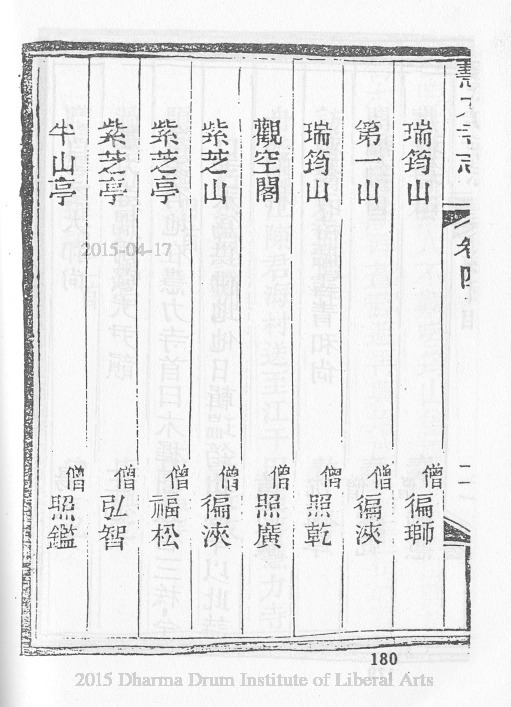 慧力寺志 卷四 二
瑞筠山 僧徧瑡
第一山 僧徧浹
瑞筠山 僧照乾
觀空閣 僧照廣
紫芝山 僧徧浹
紫芝亭 僧福松
紫芝亭 僧弘智
半山亭 僧照鑑
2015-04-17
180
2015 Dharma Drum Institute of Liberal Arts